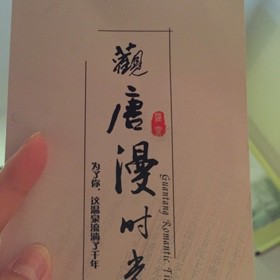 觀唐漫时光
为了你，这温泉浪漫了千年
Guantang Romantic Ti